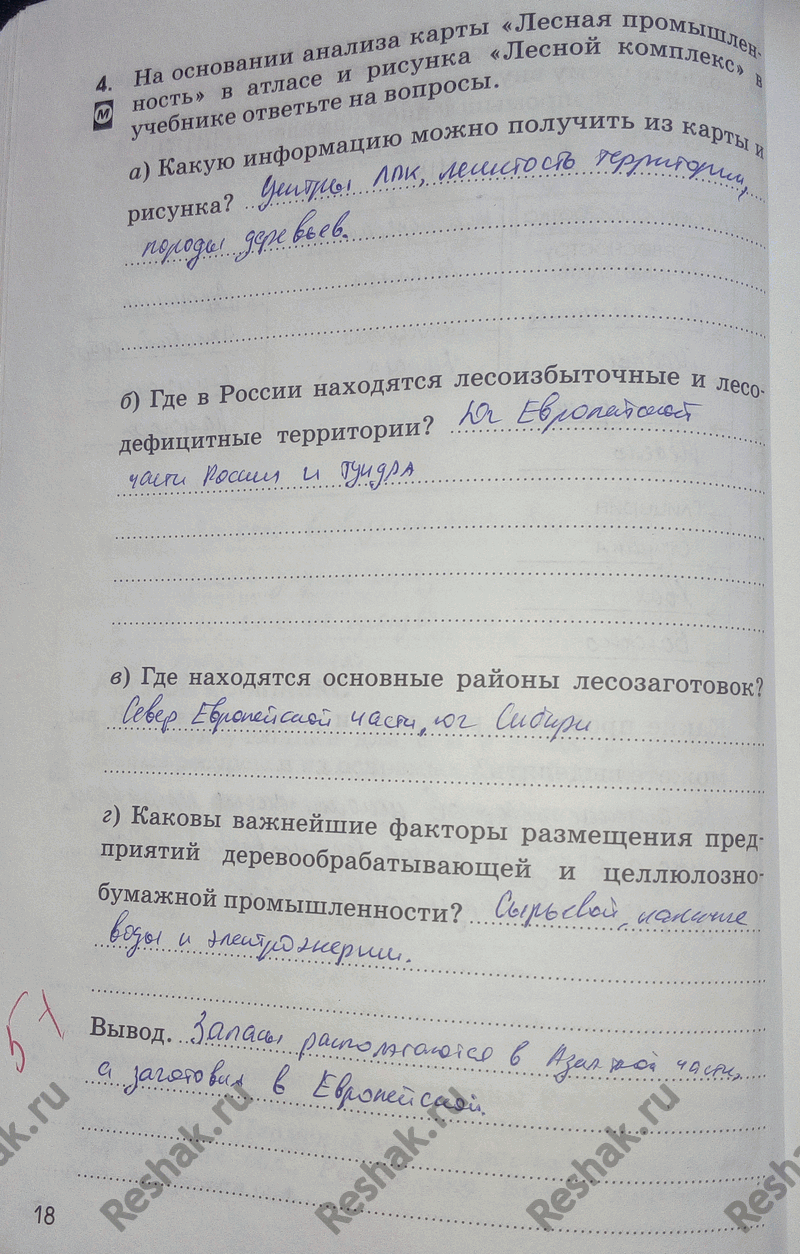 4. На основании анализа карты «Лесная промышлен-
ность» в атласе и рисунка «Лесной комплекс» в
М
учебнике ответьте на вопросы.
а) Какую информацию можно получить из карты и
рисунка? Центры ЛПК, лесистость территории,
породы деревьев.
б) Где в России находятся лесоизбыточные и лесо-
дефицитные территории? Юг Европейской
части России и тундра
в) Где находятся основные районы лесозаготовок?
Север Европейской части, юг Сибири
г) Каковы важнейшие факторы размещения пред-
приятий деревообрабатывающей и целлюлозно-
бумажной промышленности? Сырьевой, наличие
воды и электроэнергии.
Вывод. Запасы располагаются в Азиатской части,
а заготовки в Европейской.
18
Reshak.ru
Reshak.ru
Reshak.ru